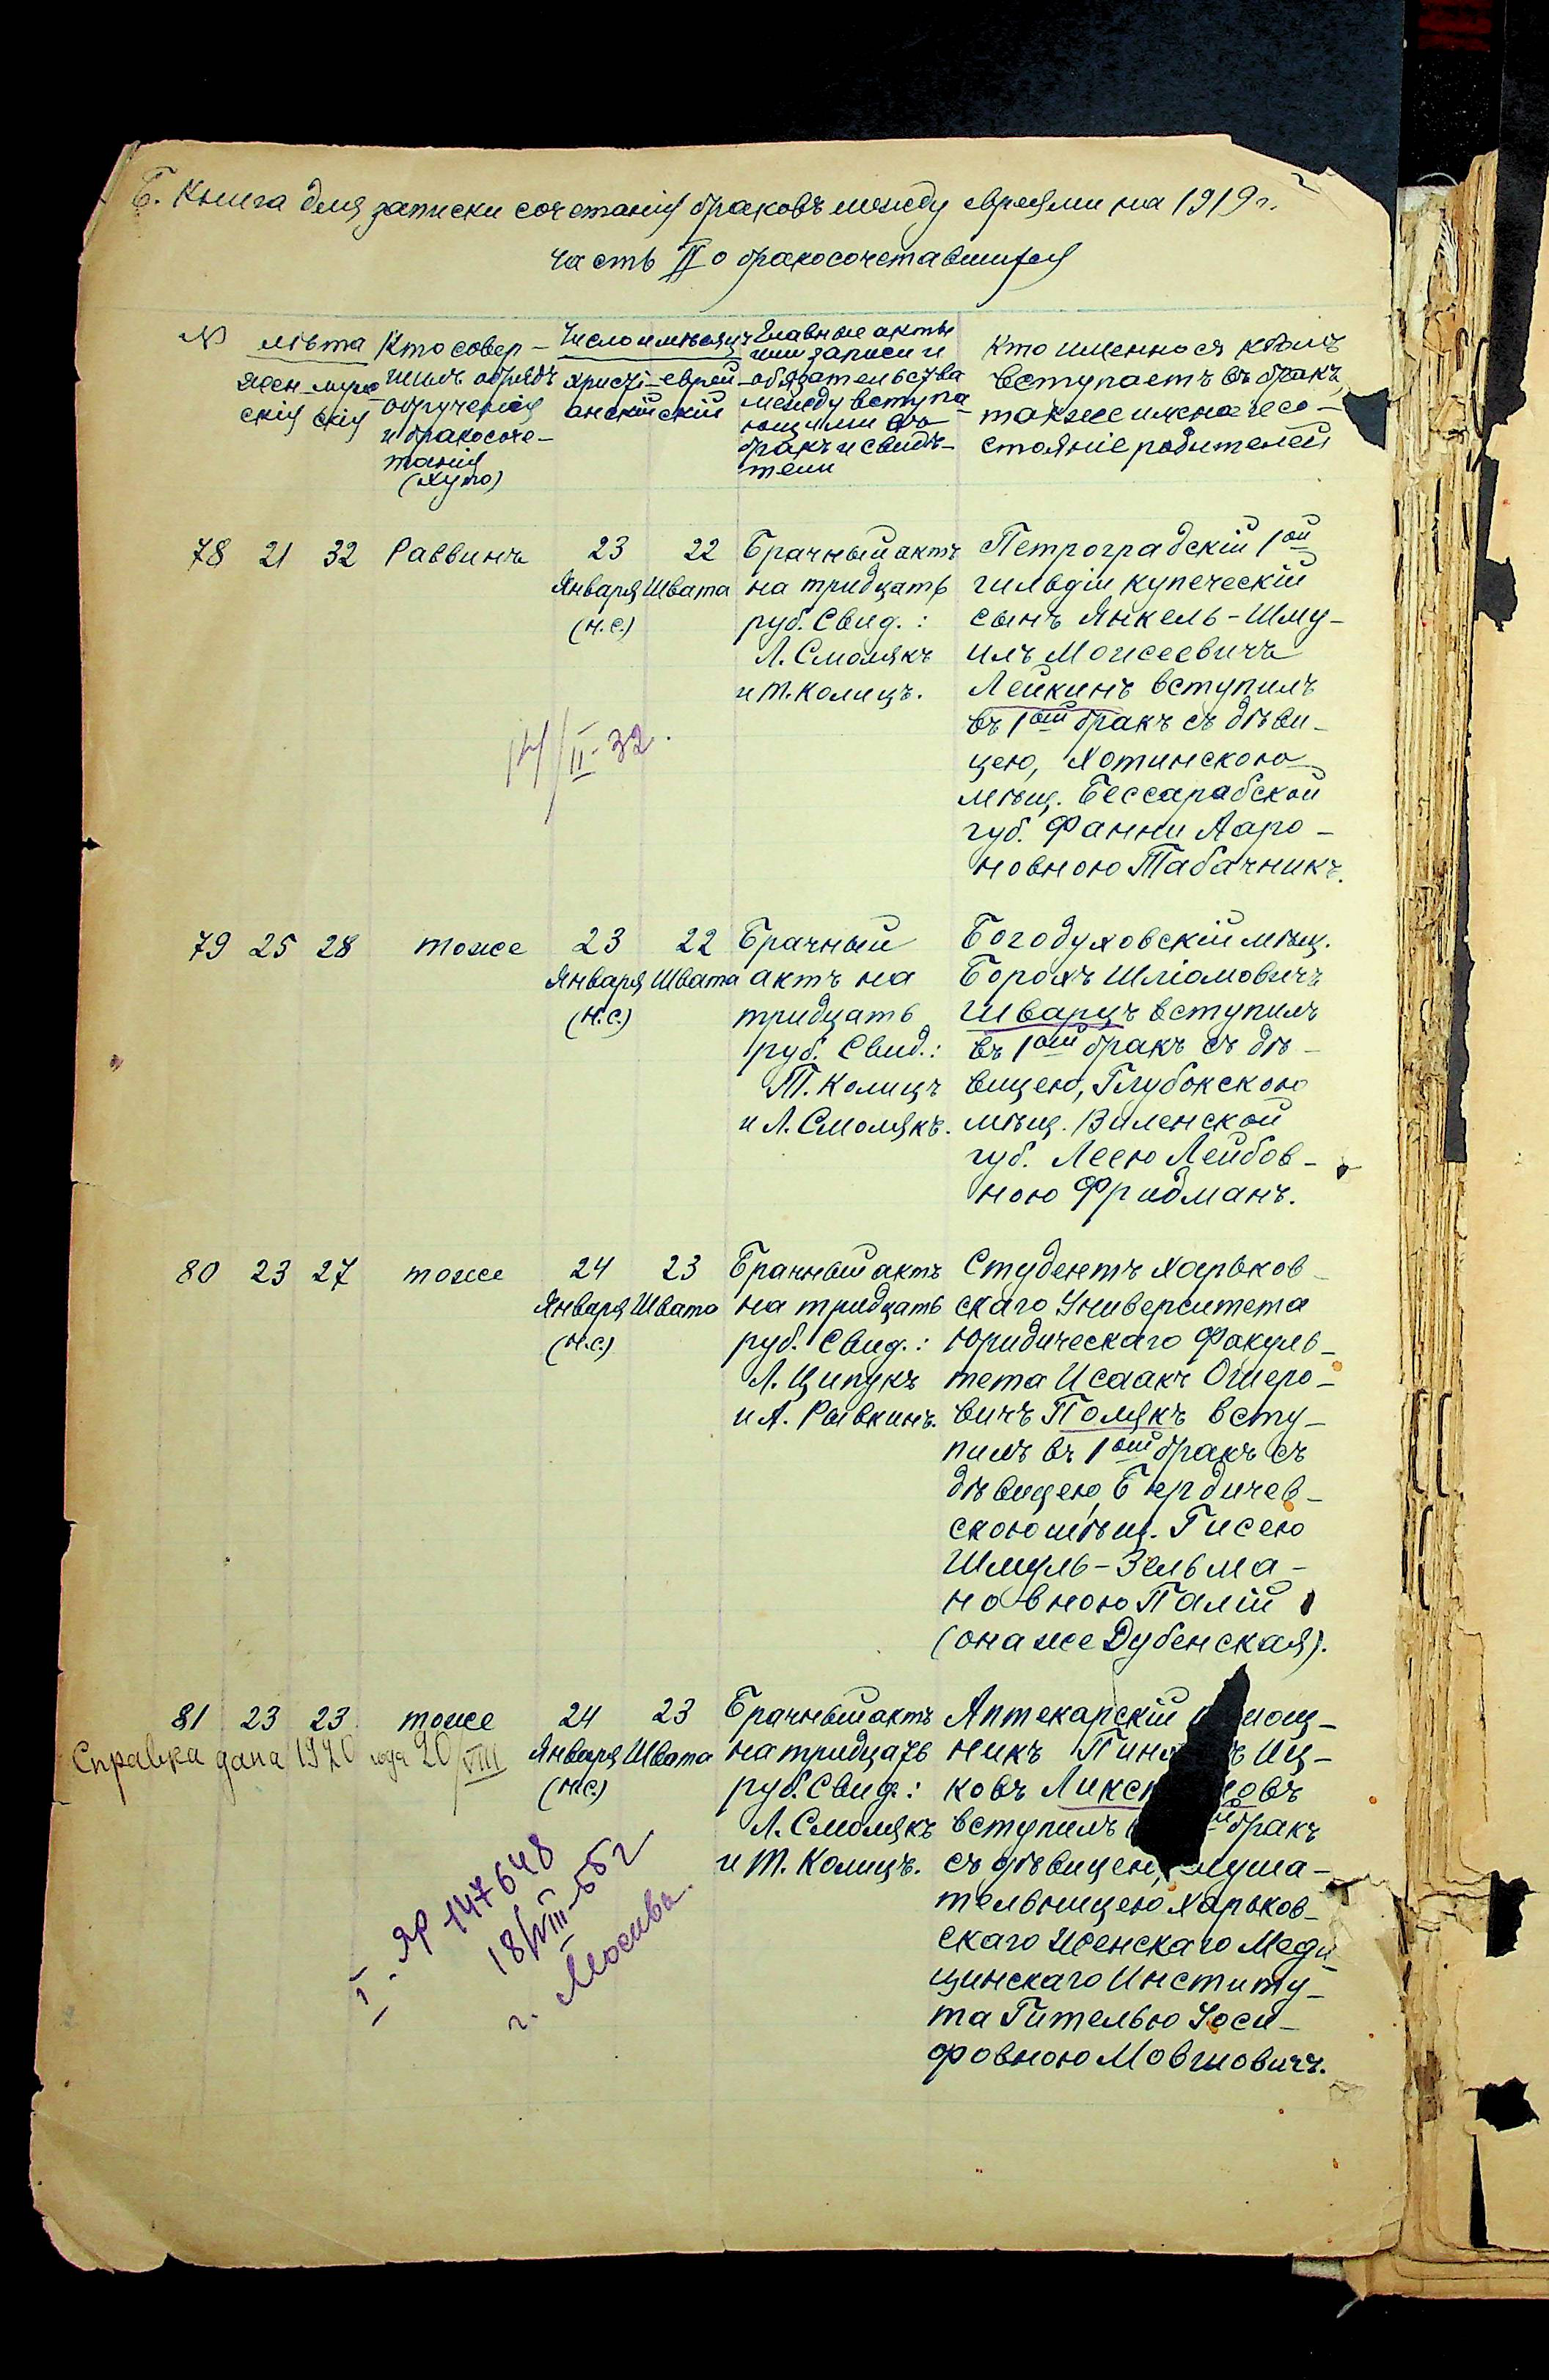 Б. Книга для записки сочетанія браковъ между евреями на 1919 г.
часть II о бракосочетавшихся
№
лѣта
Жен- муж-
скія скія
Кто совер-
шилъ обрядъ
обрученія
и бракосоче-
танія
(хупо)
Число и мѣсяцъ
христі- еврей-
анскій скій
Главные акты
или записи и
обязательства
между вступа-
ющими въ
бракъ и свидѣ-
тели
Кто именно съ кѣмъ
вступаетъ въ бракъ,
также имена и со-
стояніе родителей
78 21 32 Раввинъ
23 22
Января Швата
(н.с.)
Брачный актъ
на тридцать
руб. Свид.:
Л. Смолякъ
и Т. Колицъ.
Петроградскій 1ой
гильдіи купеческій
сынъ Янкель-Шму-
илъ Моисеевичъ
Лейкинъ вступилъ
въ 1ый бракъ съ дѣви-
цею, Хотинскою
мѣщ. Бессарабской
губ. Фанни Ааро-
новною Табачникъ.
14/II-32.
79 25 28 тоже
23 22
Января Швата
(н.с.)
Брачный
актъ на
тридцать
руб. Свид.:
Т. Колицъ
и Л. Смолякъ.
Богодуховскій мѣщ.
Борохъ Шліомовичъ
Шварцъ вступилъ
въ 1ый бракъ съ дѣ-
вицею, Глубокскою
мѣщ. Виленской
губ. Леею Лейбов-
ною Фридманъ.
80 23 27 тоже
24 23
Января Швата
(н.с.)
Брачный актъ
на тридцать
руб. Свид.:
Л. Ципукъ
и А. Рывкинъ.
Студентъ Харьков-
скаго Университета
Юридическаго Факуль-
тета Исаакъ Ошеро-
вичъ Полякъ всту-
пилъ въ 1ый бракъ съ
дѣвицею, Бердичев-
скою мѣщ. Гисею
Шмуль-Зельма-
новною Палій
(она же Дубенская).
81 23 23 тоже
24 23
Января Швата
(н.с.)
Брачный актъ
на тридцать
руб. Свид.:
Л. Смолякъ
и Т. Колицъ.
Аптекарскій
никъ Иц-
ковъ
вступилъ бракъ
съ дѣвицею,
тельницею Харьков-
скаго Женскаго Меди-
цинскаго Институ-
та Гителью Іоси-
фовною Мовшовичъ.
Справка дана 1920 года 20/VIII
I-ЯР 147648
18/VIII-55г
г. Москва.